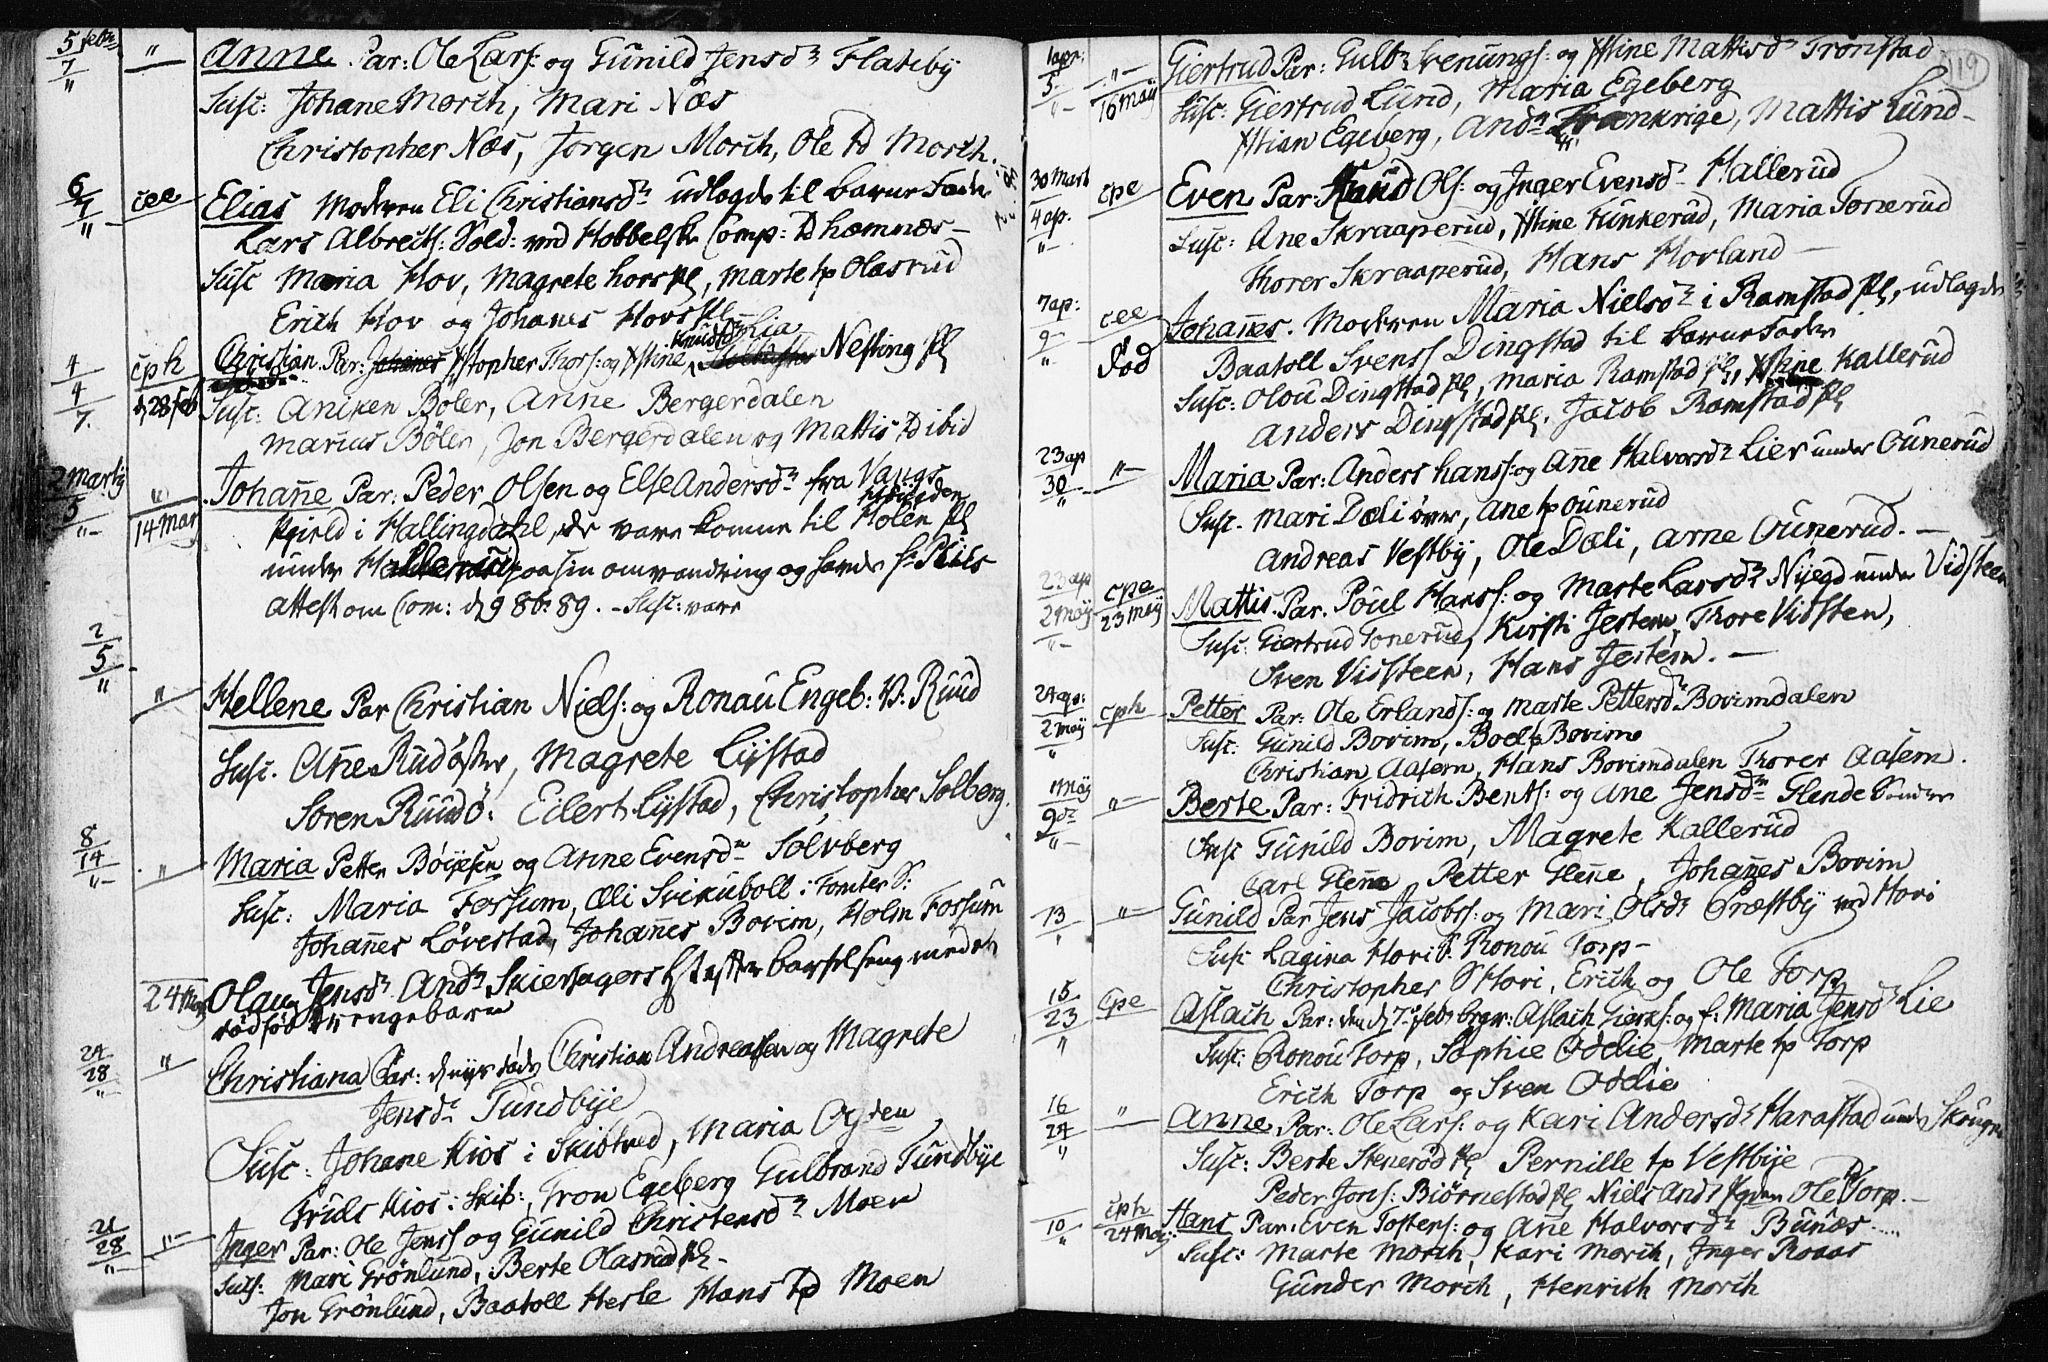 5 febr: " Anne Par: Ole Lars: og Gunild Jensd: Flateby
7
" Susc: Johane Morch, Mari Næs
Christopher Næs, Jørgen Morch, Ole td Morch.
6 cee Elias Moderen Eli Christiansd: udlagde til barnefader
7
" Lars Albrects: Sold: ved Hobbelske Comp: td hæmnæs –
Susc Maria Hov, Magrete hovs pl, Marte tp Olasrud
Erich Hov og Johanes Hovs Pl
Knudsd: Lia
4 cph Christian Par: Xstopher Thors: og Xstine Nesting pl
4 d 28 feb
7. Susc: Aniken Boler, Anne Bergerdalen
Marius Böler, Jon Bergerdalen og Mattis td ibid
2 Marty " Johañe Par: Peder Olsen og Else Andersd: fra Vangs
5 14 Mar
"- Pgield i Hallingdahl, de vare komne til Holen pl
under omvandring og havde
attest om Com: d 9 8br 89. – Susc: vare
2
5
" " Hellene Par Christian Niels: og Ronau Engeb: D: Ruud
Susc. Añe Rud öster, Magrete Lystad
Soren Ruud ö: Edert Lystad, Christopher Solberg.
8 " Maria Petter Böyesen og Anne Evensd: Solvberg
14
"- Susc: Maria Fossum, Æli Svikuboll i Tomter S:
Johañes Løvestad, Johañes Bovim, Holm Fossum
24 May Olaug Jensd: And: Skiersagers efter barselseng med et
dödföd drengebarn
24 " Christiana Par: Christian Andreasen og Magrete
28
" Jensd: Tundbÿe
Susc: Johane Kios i Skibtved, Maria Ogden
Friils Kios: Skib:, Tron Egeberg Gulbrand Tundbÿe
21 " Inger Par: Ole Jenss og Gunild Christensd: Moen
28
"- Susc: Mari Grönlund, Berte Olasrud pl –
Jon Grönlund, Baatoll Herle Hans td Moen
119
1 apr: "- Giertrud Par: Gulb: Svenungs: og Xstine Mattisd: Tronstad
5 16 Maÿ
"- Susc: Giertrud Lund, Maria Egeberg
Xstian Egeberg, And: Frankrige, Mattis Lund –
30 Mart cpe Even Par: Knud Ols: og Inger Evensd: Hallerud
4 ap.
"- Susc: Ane Skraaperud, Xstine Funkerud, Maria Tonerud
Thorer Skraaperud, Hans Hovland –
7 ap: cee Johañes. Moderen Maria Nielsd: i Ramstad pl, udlagde
9 – död Baatoll Svenss Dingstad til barnefader
" Susc: Olou Dingstad pl, Maria Ramstad pl, Xstine Kallerud
Anders Dingstad pl. Jacob Ramstad pl
23 ap "- Maria Par: Anders Hanss: og Añe Halvorsd: Lier under Ounerud
30
" Susc. Mari Dæli över, Ane tp Ounerud
Andreas Vestbÿ, Ole Dæli, Arne Ounerud. –
23 ap cpe Mattis. Par. Poul Hanss: og Marte Larsd: Nÿegd under Vidsteen
2 Maÿ 23 Maÿ
"- Susc: Giertrud Tonerud, Kirsti Jestem, Thore Vidsten,
Sven Vidsteen, Hans Jestem. –
24 ap: cph Petter Par: Ole Erlands: og Marte Pettersd: Bovimdalen
2 Maÿ
" Susc: Gunild Bovim, Bodl tp Bovim
Christian Aasem, Hans Bovimdalen Thorer Aasem.
1 Maÿ "- Berte Par: Fridrich Bents: og Ane Jensd: Glende Sunder
9 d:
"- Susc Gunild Bovim, Magrete Kallerud
Carl Gleñe Petter Gleñe, Johañes Bovim
13 "- Gunild Par Jens Jacobs: og Mari Olsd: Præstbÿ ved Hovi
" Susc Lagina Hovi S. Ronou Torp –
Christopher S Hovi, Erich og Ole Torp
15 cpe Aslach Par: den d 7 feb: begr: Aslach Gierm: og f: Maria Jensd: Lie
23
" Susc: Ronou Torp, Sophie Oddie, Marte tp Torp
Erich Torp og Sven Oddie
16 " Anne Par: Ole Lars: og Kari Andersd: Harastad under Skrugn
24
" Susc: Berte Stenerød pl Pernille tp Vestbÿe
Peder Jons: Biörnestad pl Niels And: Ole Torp. –
10 cph Hans Par: Even Tostens: og Ane Halvorsd: Bunæs....
" 24 Maÿ Susc: Marte Morch, Kari Morch, Inger Roaas
Gunder Morch, Henrich Morch